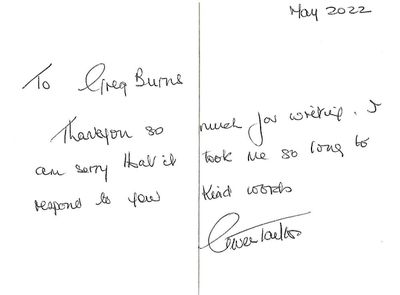 May 2022
To Greg Burns
Thankyou so much for writing. I
am sorry that it took me so long to
respond to your kind words